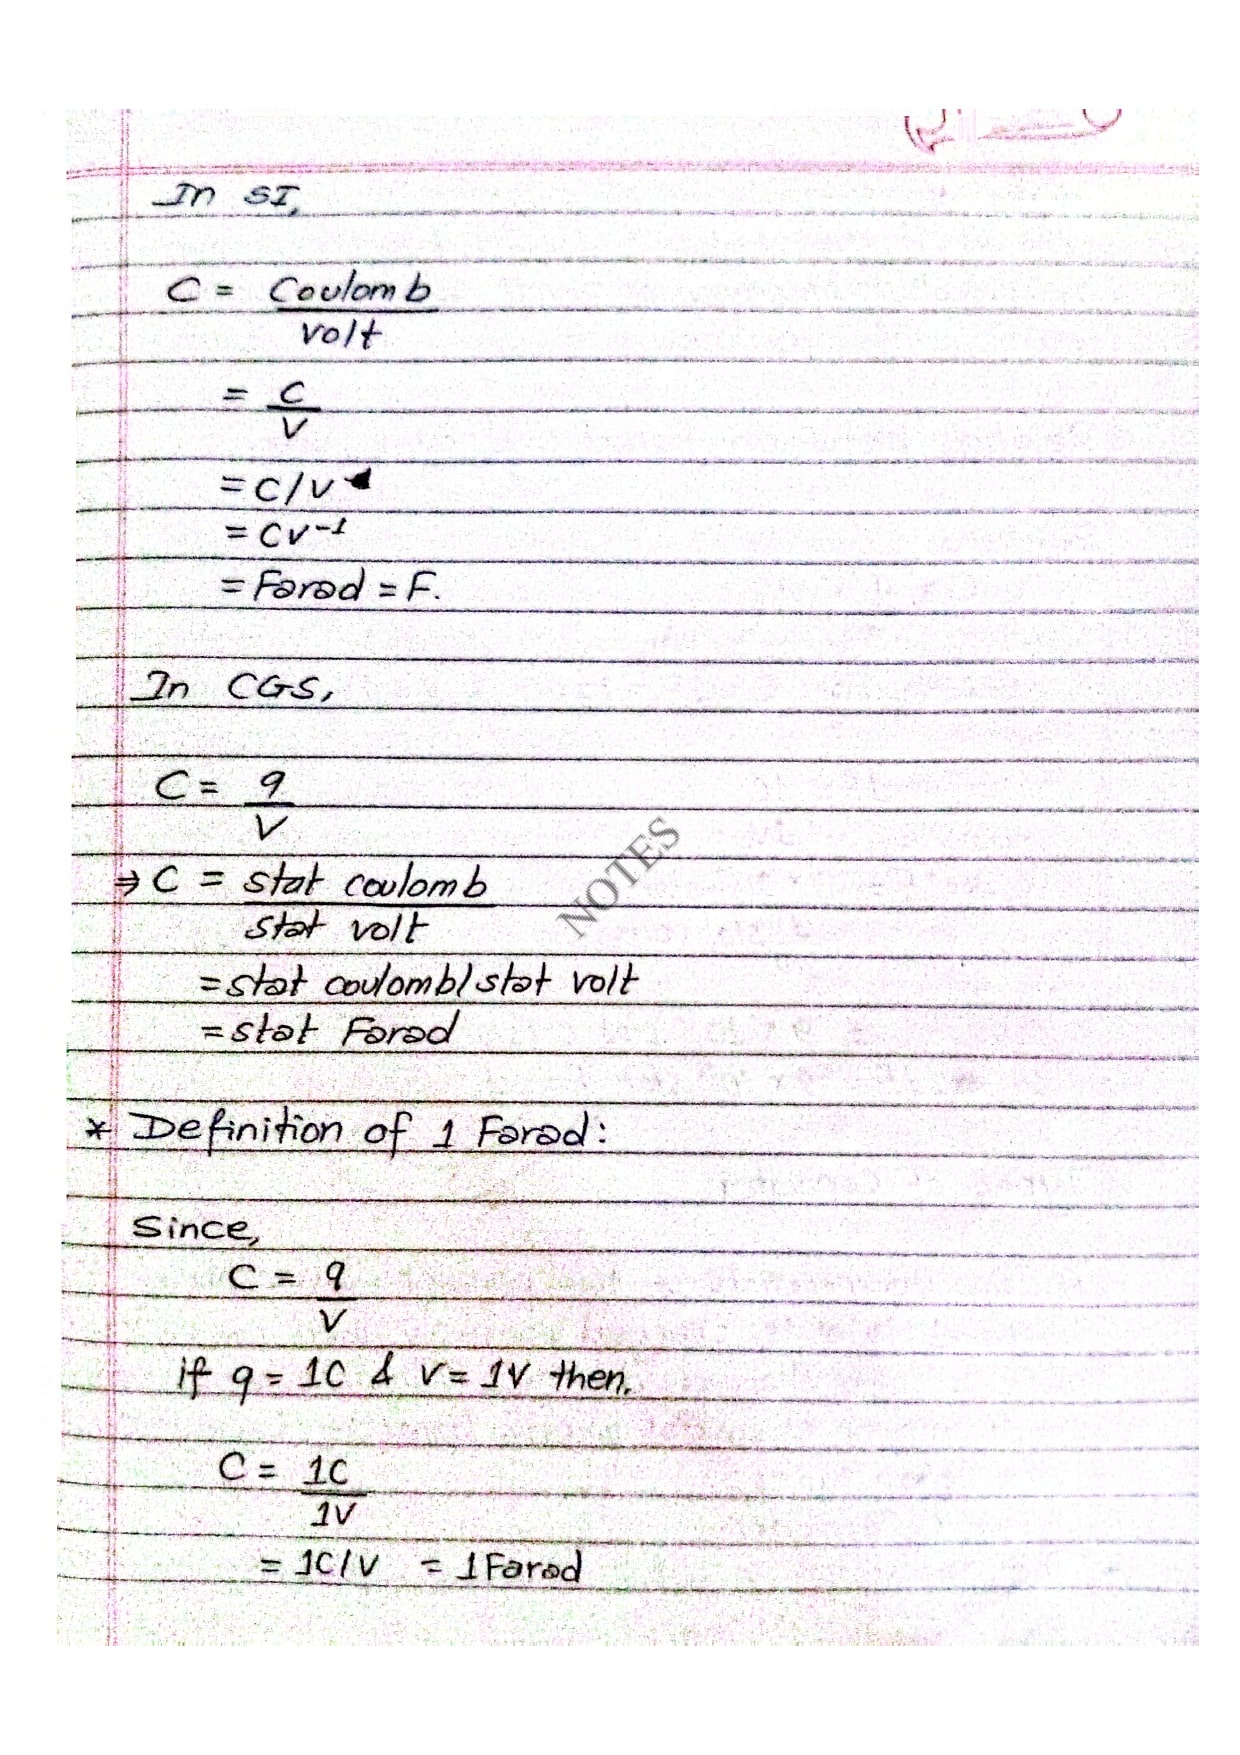 In SI,
C = Coulomb
volt
= C
V
= C/V
= CV⁻¹
= Farad = F.
In CGS,
C = q
V
⇒ C = stat coulomb
stat volt
= stat coulomb/stat volt
= stat Farad
* Definition of 1 Farad:
Since,
C = q
V
if q = 1C & V = 1V then,
C = 1C
1V
= 1C/V = 1Farad
NOTES